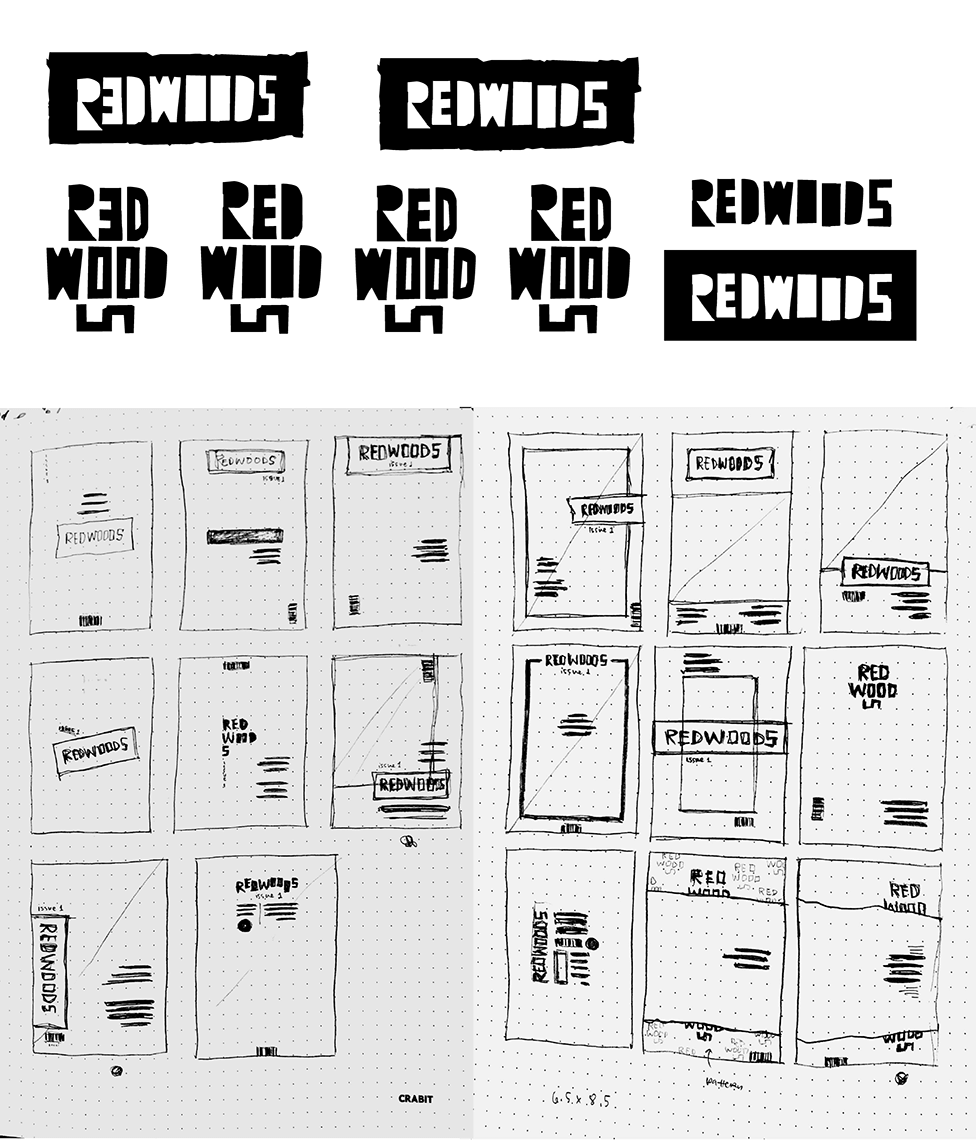 REDWOODS
REDWOODS
RED
WOOD
S
RED
WOOD
S
RED
WOOD
S
RED
WOOD
S
REDWOODS
REDWOODS
REDWOODS
REDWOODS
issue 1
REDWOODS
issue 1
issue 1
REDWOODS
RED
WOOD
S
issue 1
REDWOODS
issue 1
REDWOODS
REDWOODS
issue 1
CRABIT
REDWOODS
issue 1
REDWOODS
REDWOODS
REDWOODS
issue 1
REDWOODS
issue 1
RED
WOOD
S
REDWOODS
RED
WOOD
S
RED
WOOD
S
WOO
RED
RED
WOOD
WOOD
S
RED
WOOD
S
RED
WOOD
RED
WOOD
WOOD
S
pattern
6.5 x 8.5